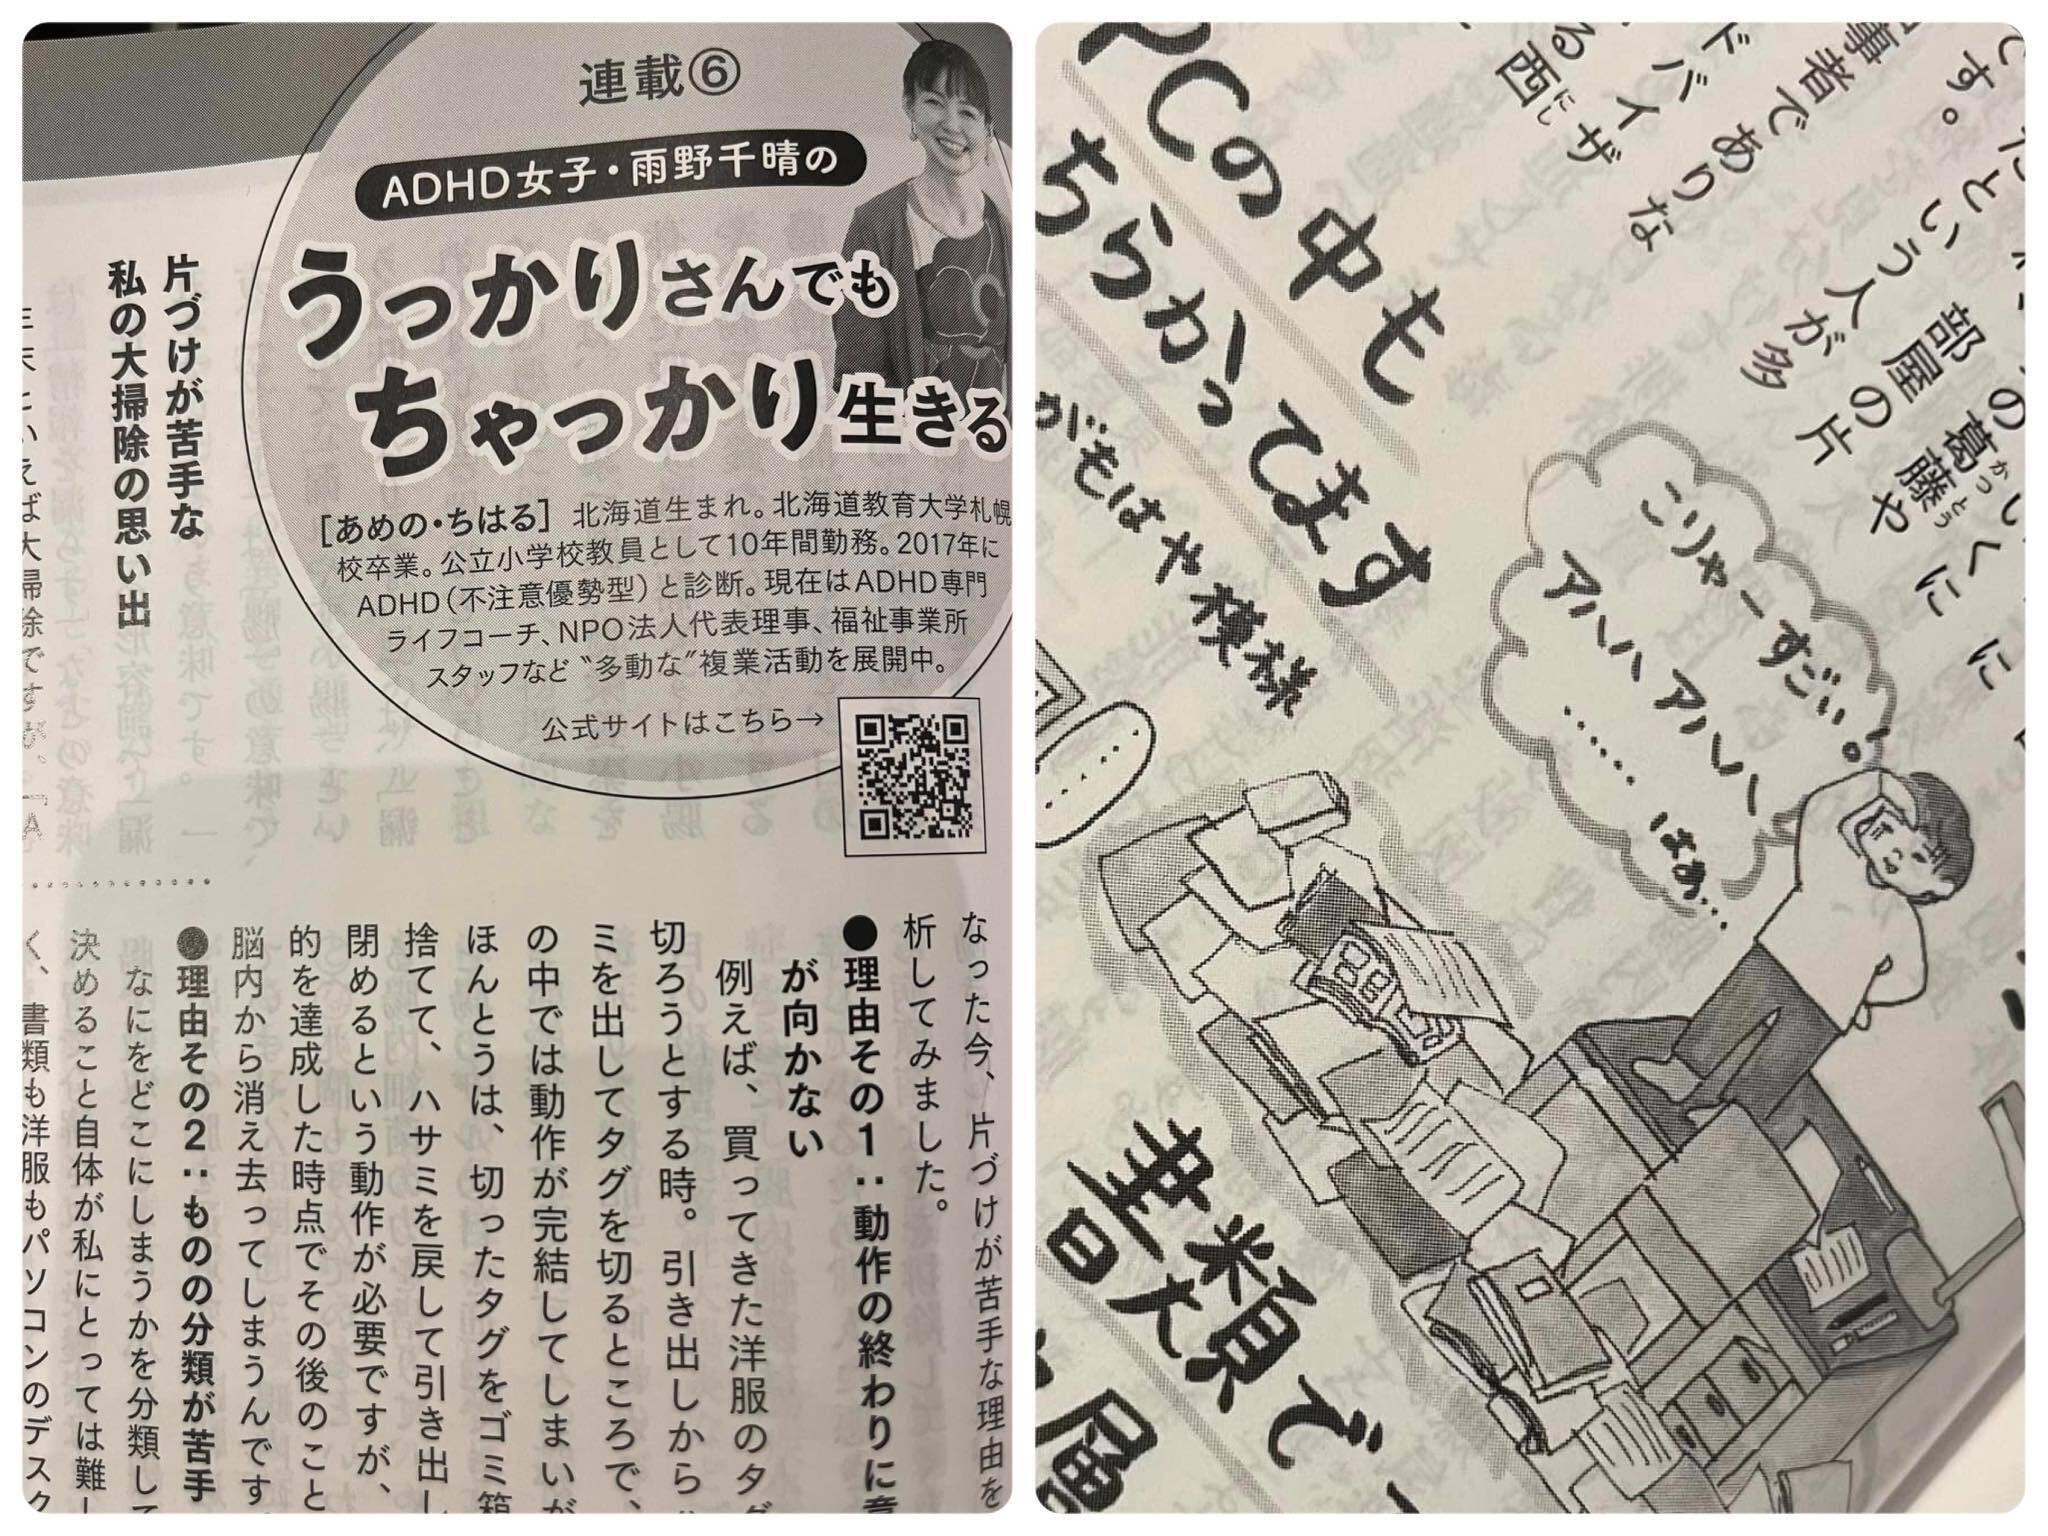 連載⑥
ADHD女子・雨野千晴の
うっかりさんでも
ちゃっかり生きる
［あめの・ちはる］ 北海道生まれ。北海道教育大学札幌
校卒業。公立小学校教員として10年間勤務。2017年に
ADHD（不注意優勢型）と診断。現在はADHD専門
ライフコーチ、NPO法人代表理事、福祉事業所
スタッフなど〝多動な〞複業活動を展開中。
公式サイトはこちら→
片づけが苦手な
私の大掃除の思い出
年末といえば大掃除ですが、「A
なった今、片づけが苦手な理由を
析してみました。
●理由その1：動作の終わりに意
が向かない
例えば、買ってきた洋服のタグ
切ろうとする時。引き出しから
ミを出してタグを切るところで、
の中では動作が完結してしまいが
ほんとうは、切ったタグをゴミ箱
捨てて、ハサミを戻して引き出し
閉めるという動作が必要ですが、
的を達成した時点でその後のこと
脳内から消え去ってしまうんです。
●理由その2：ものの分類が苦手
なにをどこにしまうかを分類して
決めること自体が私にとっては難し
く、書類も洋服もパソコンのデスク
です。
だという人が多
部屋の片
葛藤や
かっとう
いくに
事者であり
ドバイザ
る西
にし
な
PCの中も
ちらかってます
がもはや模様
こりゃーすごい！
アハハ アハハ
……
はぁ…
書類で